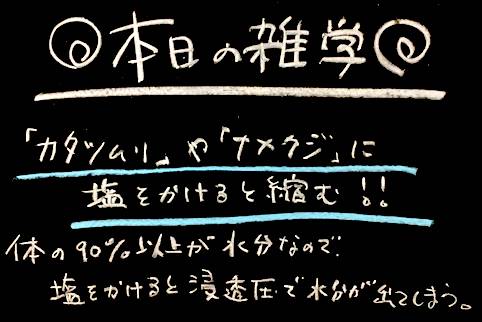 本日の雑学
「カタツムリ」や「ナメクジ」に
塩をかけると縮む!!
体の90%以上が水分なので
塩をかけると浸透圧で水分が出てしまう。